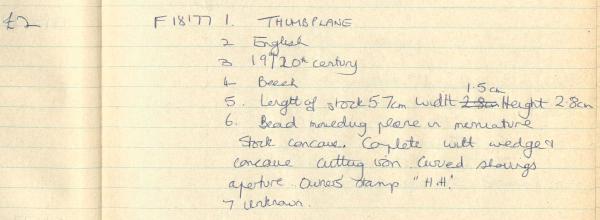 £2 F18177 1. THUMBPLANE
2 English
3 19/20th century
4 Beech
1.5cm
5. Length of stock 57cm width 2.8cm Height 2.8cm
6. Bead moulding plane in miniature
Stock concave. Complete with wedge &
concave cutting iron. Curved shavings
aperture. Owners stamp "H.H."
7 Unknown.